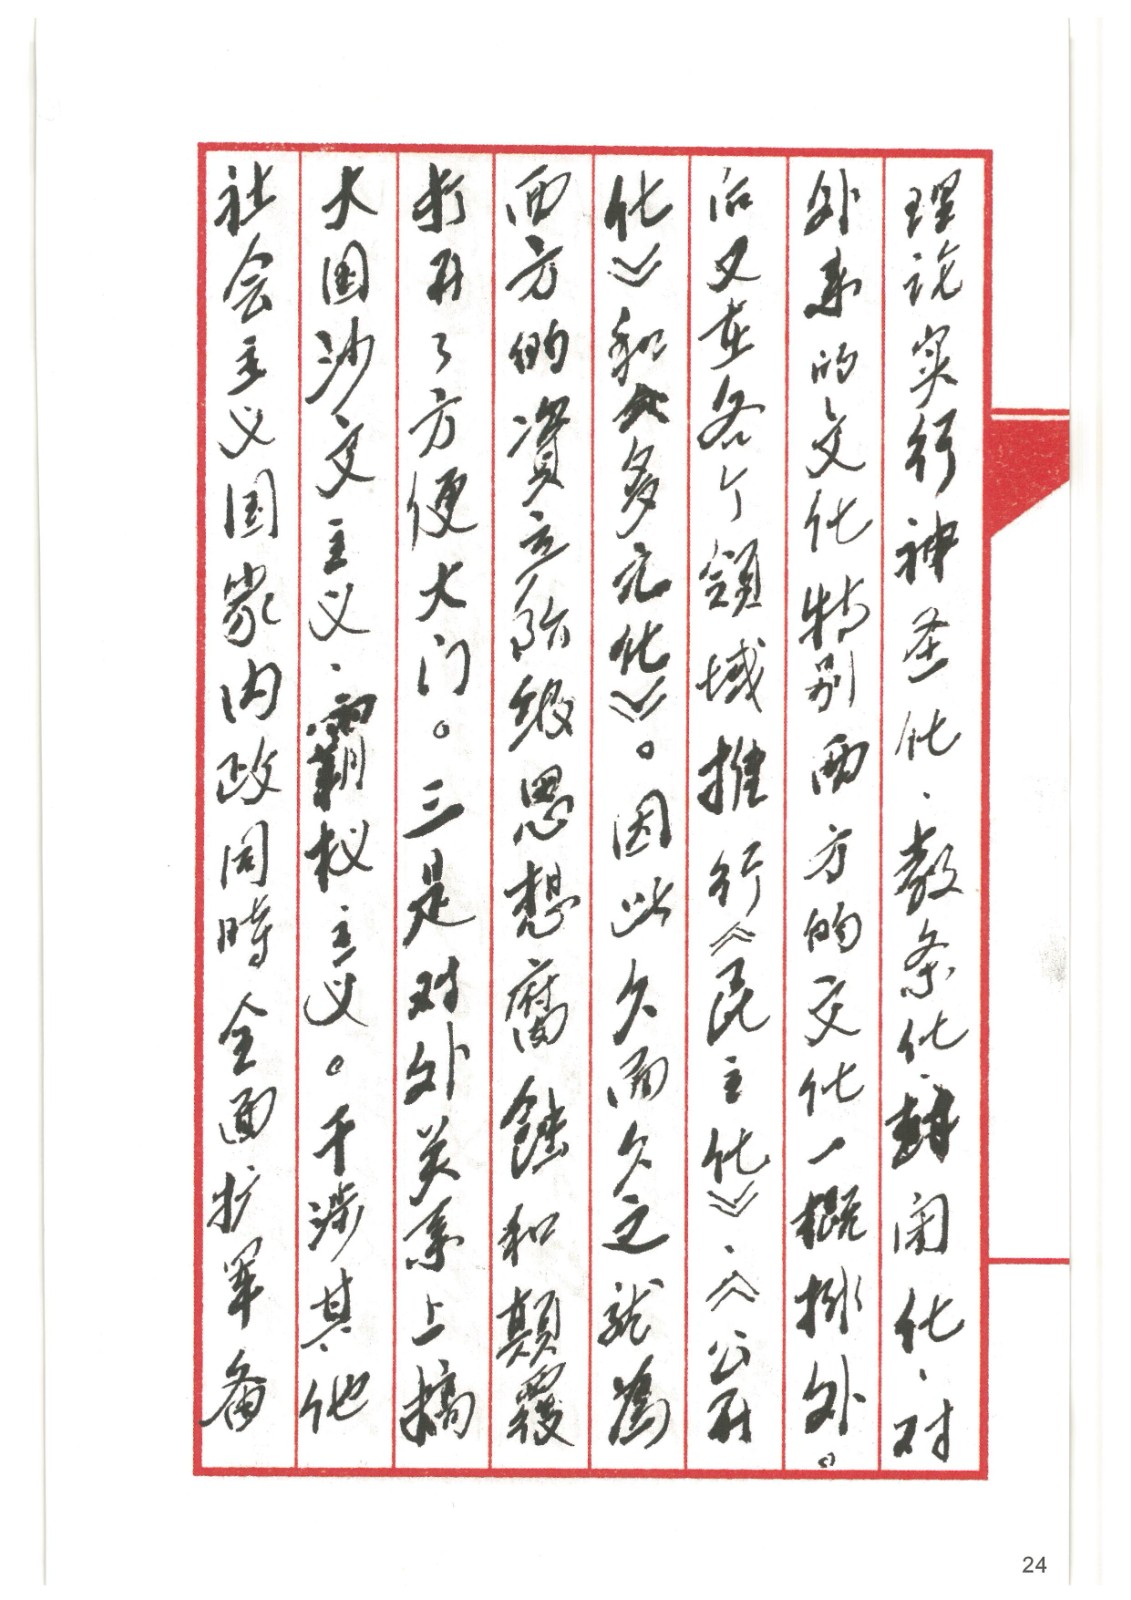 理论实行神圣化、教条化、封闭化、对
外来的文化特别西方的文化一概排外。
后又在各个领域推行《民主化》、《公开
化》和《多元化》。因此久而久之就为
西方的資产阶级思想腐蚀和颠覆
打开了方便大门。三是对外关系上搞
大国沙文主义、霸权主义。干涉其他
社会主义国家内政同時全面扩军备
24